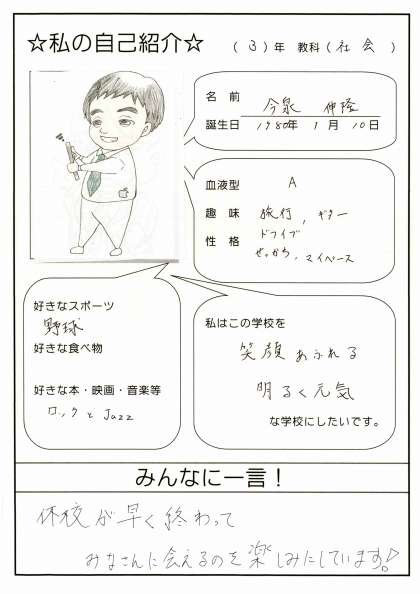 ☆私の自己紹介☆ (3)年 教科(社会)
名前 今泉 伸隆
誕生日 1980年 1月 10日
血液型 A
趣味 旅行, ギター
ドライブ
性格 せっかち、マイペース
好きなスポーツ
野球
好きな食べ物
好きな本・映画・音楽等
ロックとJazz
私はこの学校を
笑顔あふれる
明るく元気
な学校にしたいです。
みんなに一言!
休校が早く終わって
みなさんに会えるのを楽しみにしています!